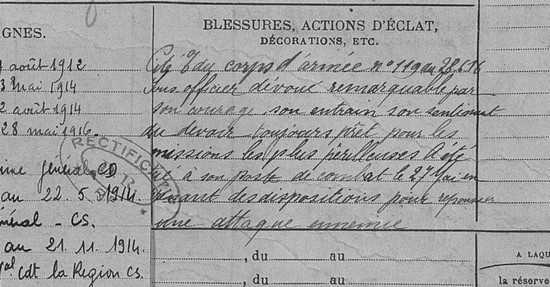 GNES.
août 1912
3 mai 1914
2 août 1914
28 mai 1916
général CD
au 22.5.1914.
général - CS.
au 21.11.1914.
cdt la Region CS.
BLESSURES, ACTIONS D'ÉCLAT,
DÉCORATIONS, ETC.
Cité à l'O. du corps d'armée n° 119 du 28.5.16
sous officier dévoué remarquable par
son courage, son entrain son sentiment
du devoir toujours prêt pour les
missions les plus périlleuses. A été
tué à son poste de combat le 27 mai en
prenant des dispositions pour repousser
une attaque ennemie
, du au
, du au
RECTIFIC
A LAQU
la réserve